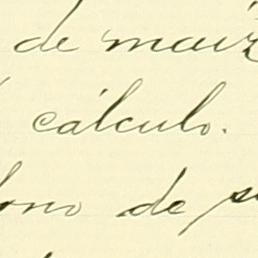 de maiz
cálculo.
de